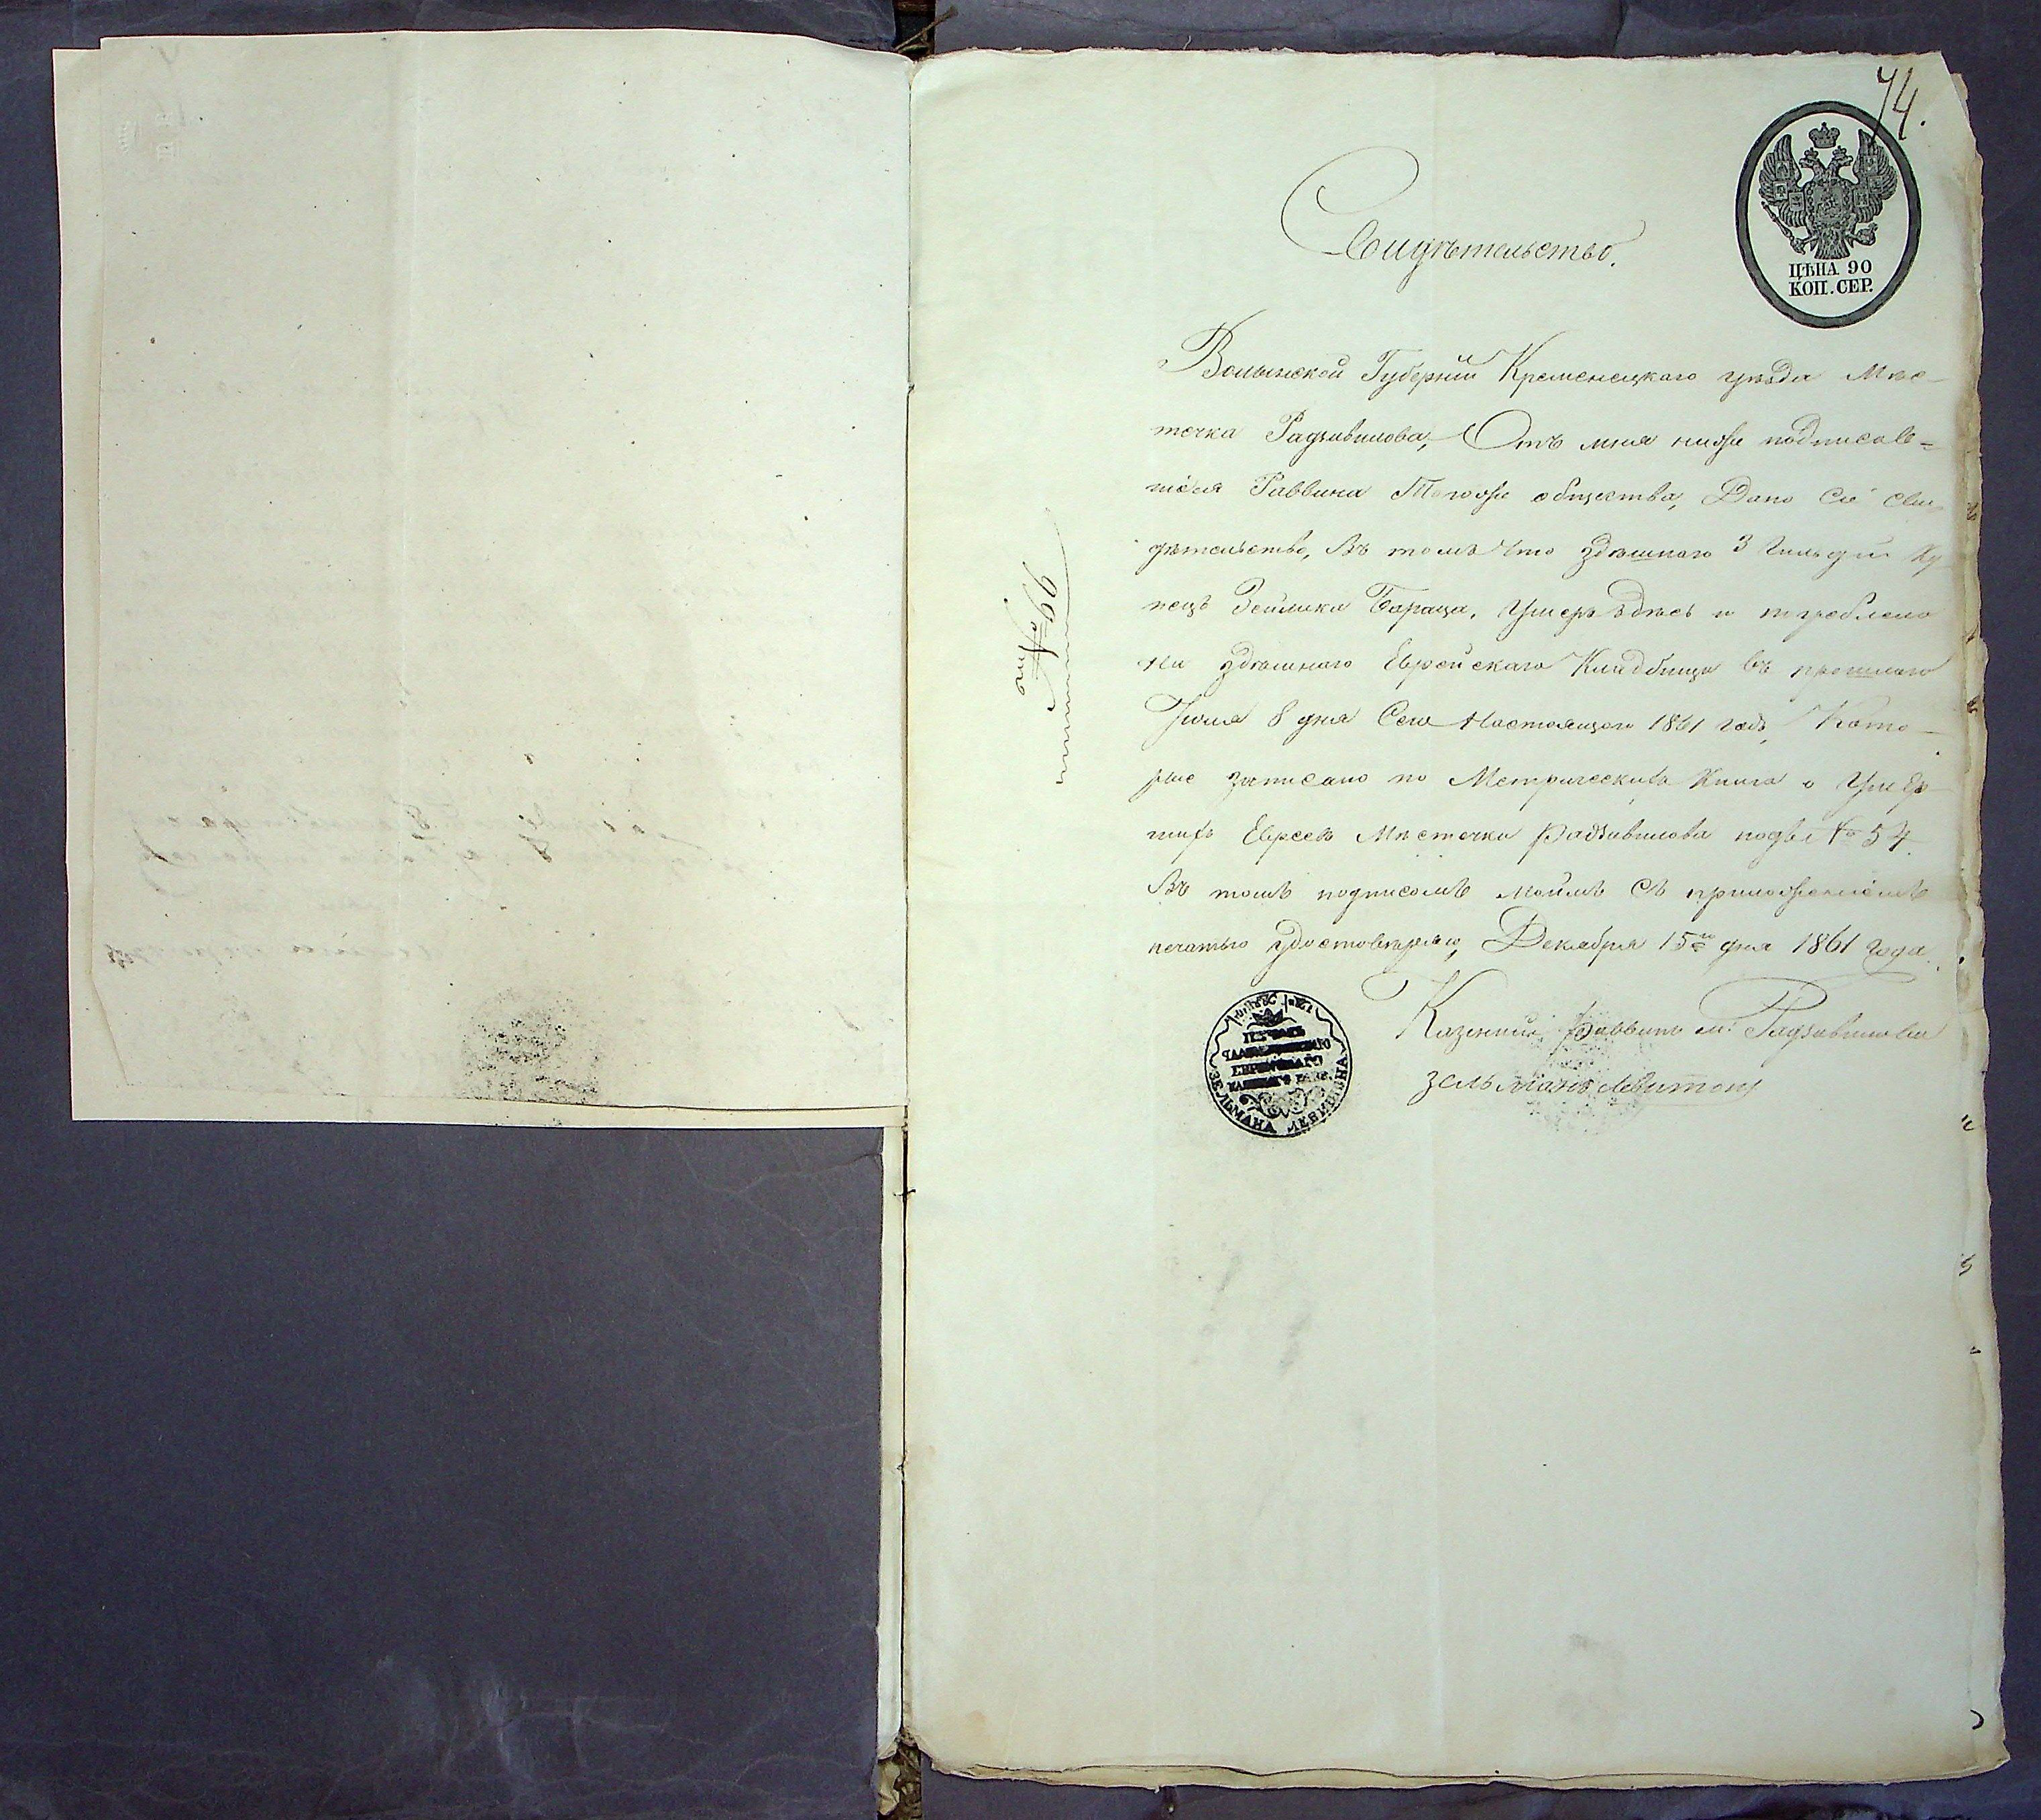 74.
ЦѢНА 90
КОП. СЕР.
Свидѣтельство.
Волынской Губерніи Кременецкаго уѣзда Мѣс-
течка Радзивилова, Отъ мня ниже подписав-
шаго Раввина Тогоже общества, Дано Сіе сви
дѣтельство, Въ томъ что здѣшнаго 3 Гильдіи Ку
пецъ Зейлика Бараца, Умеръ здѣсь и погреблено
на здѣшнаго Еврейскаго Кладбища въ прошлаго
Іюля 8 дня Сего Настоящего 1861 года, Кото-
рые записано по Метрическихъ Книга о Умер
шихъ Евреевъ Мѣстечка Радзивилова подъ № 54.
Въ томъ подписомъ моимъ съ приложеніемъ
печатью удостовѣряю, Декабря 15го дня 1861 года.
Казенный Раввинъ м. Радзивилова
Зельманъ Левитонъ
№ 66
ПЕЧАТЬ
ЕВРЕЙСКАГО
ЗЕЛЬМАНА ЛЕВИТОНА